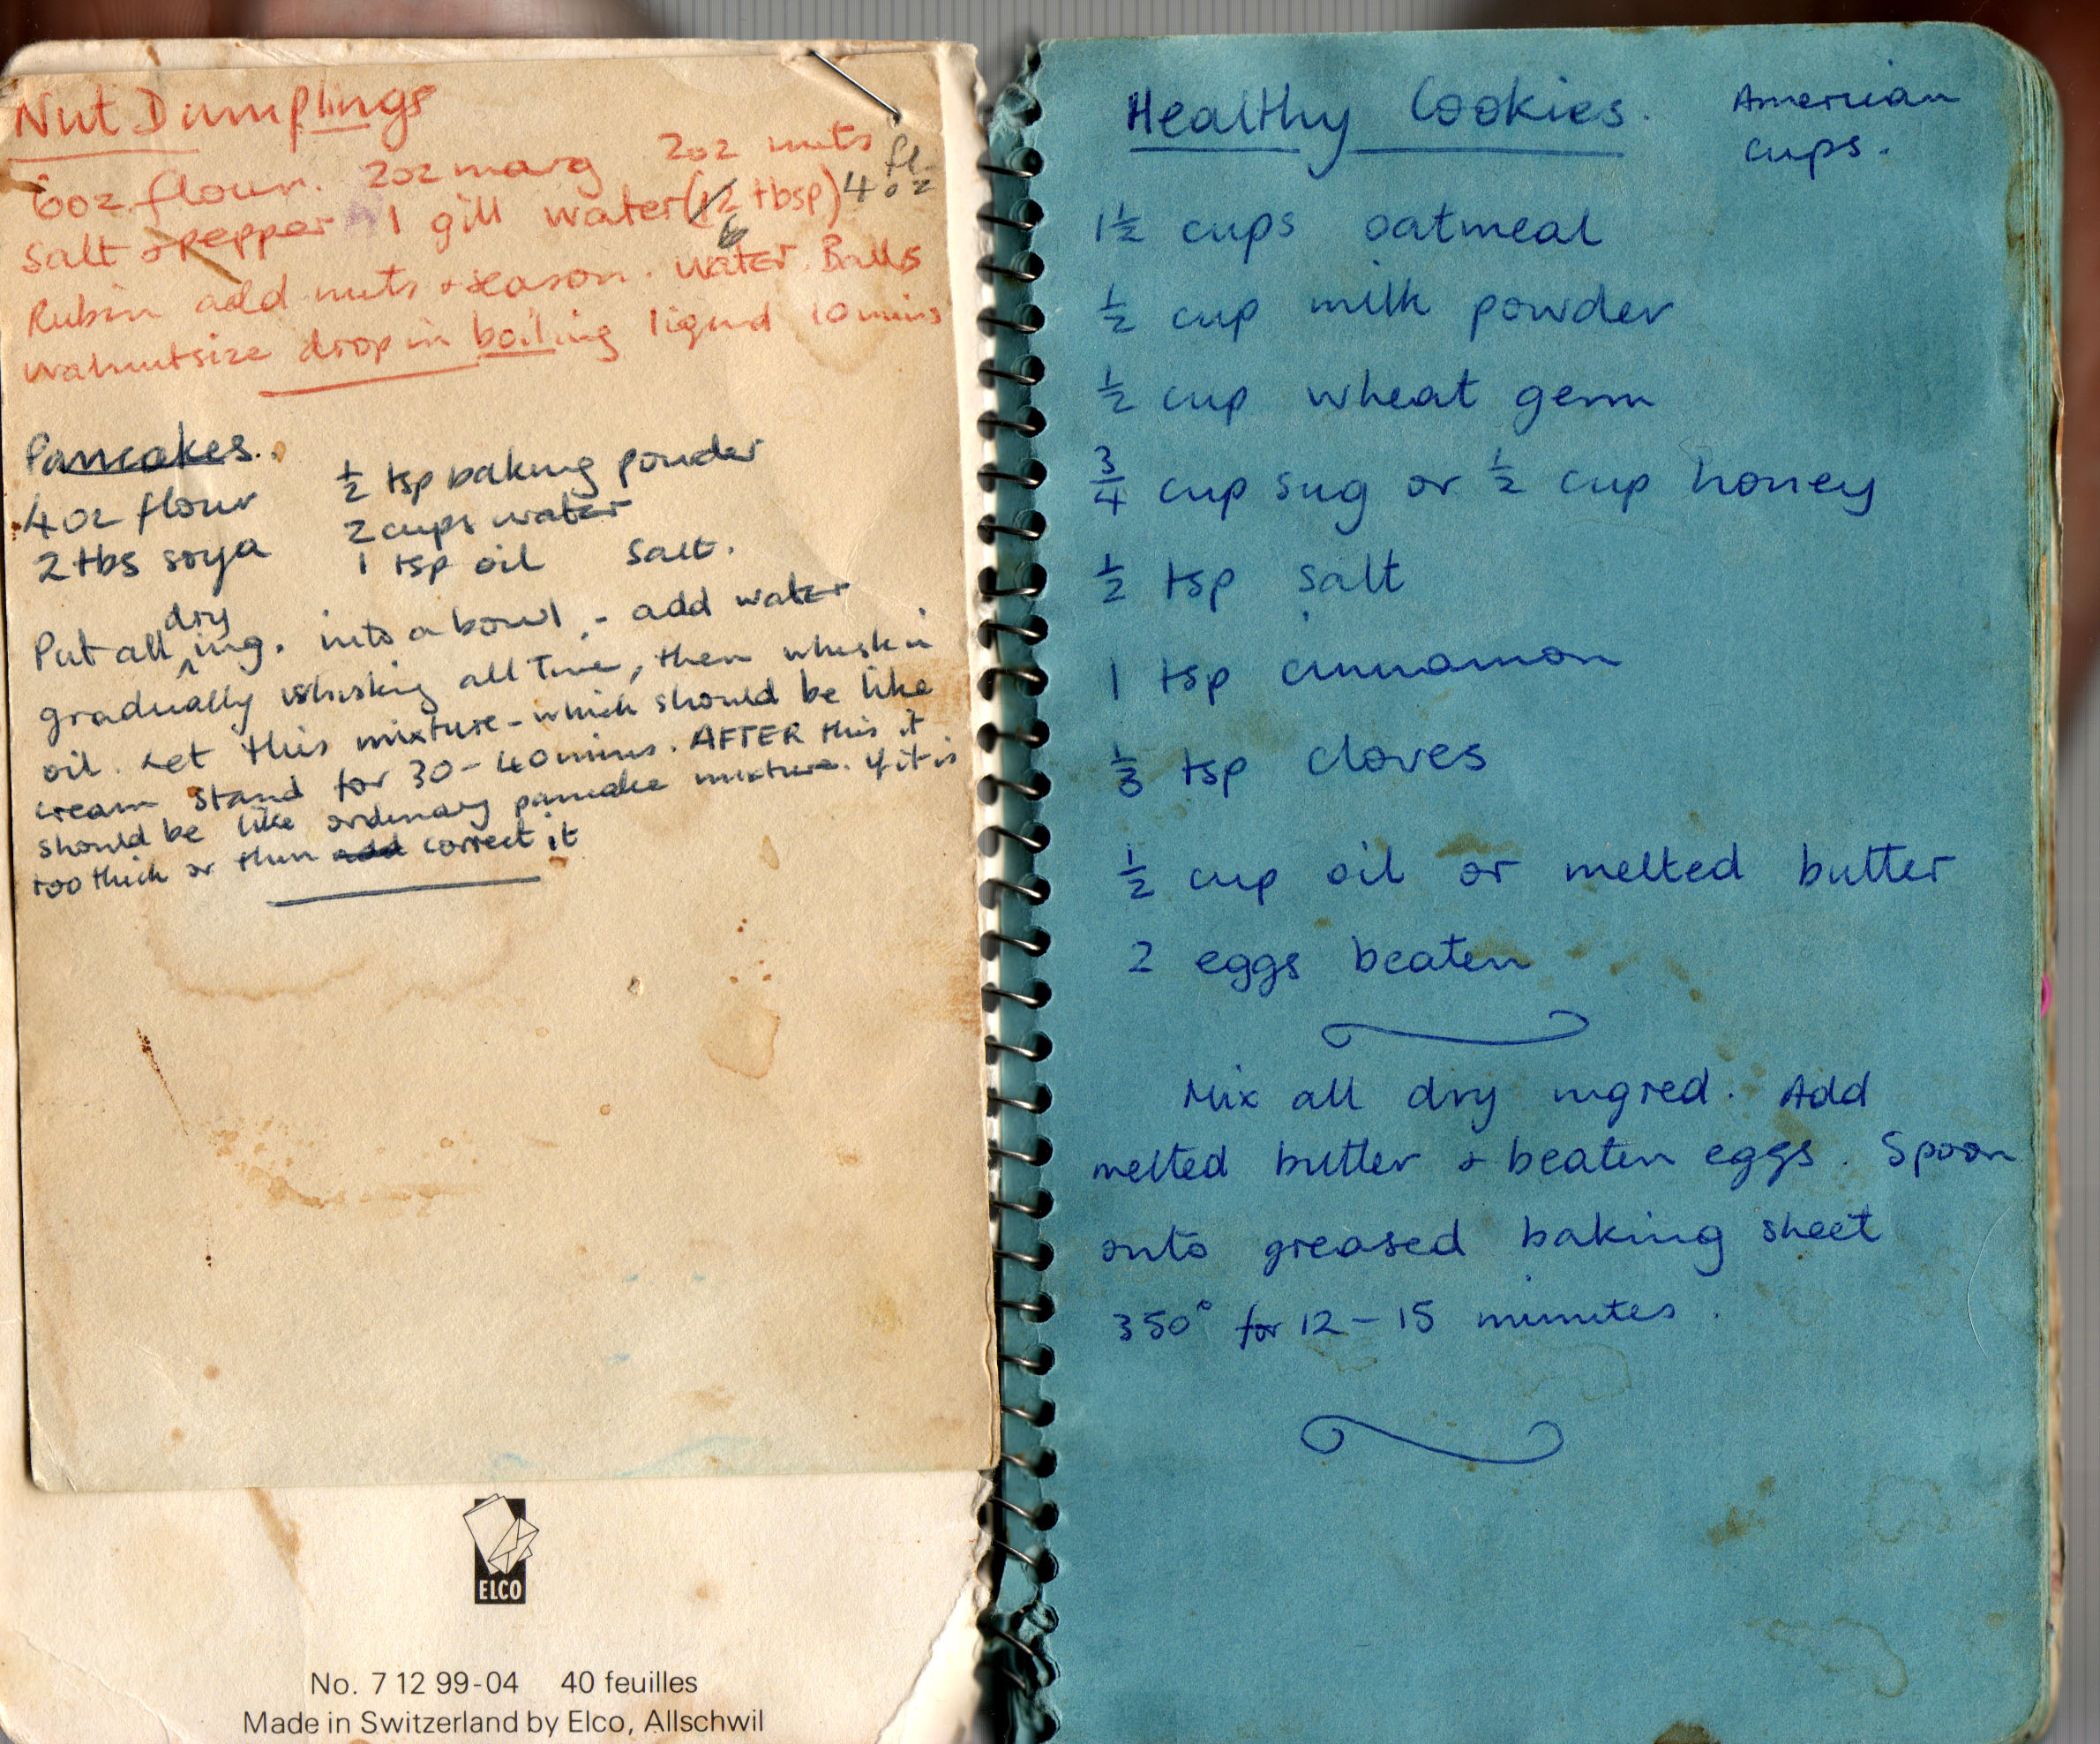 Nut Dumplings
6oz flour. 2oz marg 2oz nuts
Salt + pepper 1 gill water (12 tbsp) 4 fl oz
6
Rub in add nuts + season. water. Balls
walnutsize drop in boiling liquid 10 mins
Pancakes.
4oz flour ½ tsp baking powder
2 tbs soya 2 cups water
1 tsp oil Salt.
Put all dry ing. into a bowl, - add water
gradually whisking all time, then whisk in
oil. Let this mixture - which should be like
cream stand for 30 - 40 mins. AFTER this it
should be like ordinary pancake mixture. If it is
too thick or thin add correct it
ELCO
No. 7 12 99-04 40 feuilles
Made in Switzerland by Elco, Allschwil
Healthy Cookies. American
cups.
1½ cups oatmeal
½ cup milk powder
½ cup wheat germ
¾ cup sug or ½ cup honey
½ tsp salt
1 tsp cinnamon
⅓ tsp cloves
½ cup oil or melted butter
2 eggs beaten
Mix all dry ingred. Add
melted butter + beaten eggs. Spoon
onto greased baking sheet
350° for 12 - 15 minutes.